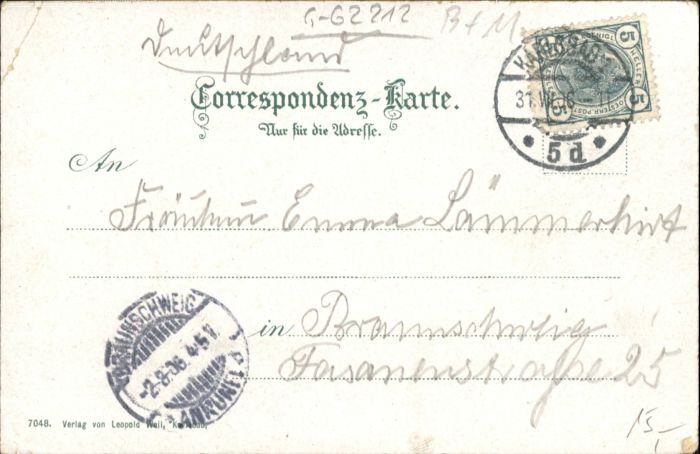 G-G2212
B+M
Deutschland
Correspondenz-Karte.
Nur für die Adresse.
KARLSBAD 1
31.VII.06
5d
5 HELLER 5
An
Fräulein Emma Lämmerhirt
in Braunschweig
Fasanenstraße 25
BRAUNSCHWEIG
-2.8.06. 4-5 N.
ANKUNFT
15,-
7048. Verlag von Leopold Weil, Karlsbad.